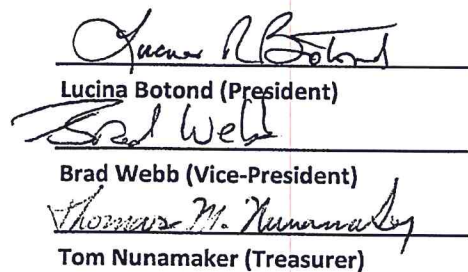 Lucina R Botond
Lucina Botond (President)
Brad Webb
Brad Webb (Vice-President)
Thomas M. Nunamaker
Tom Nunamaker (Treasurer)